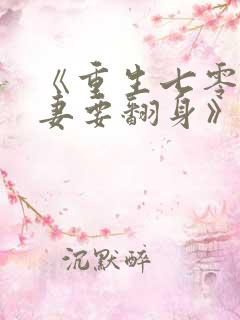 《重生七零
妻要翻身》
沉默醉